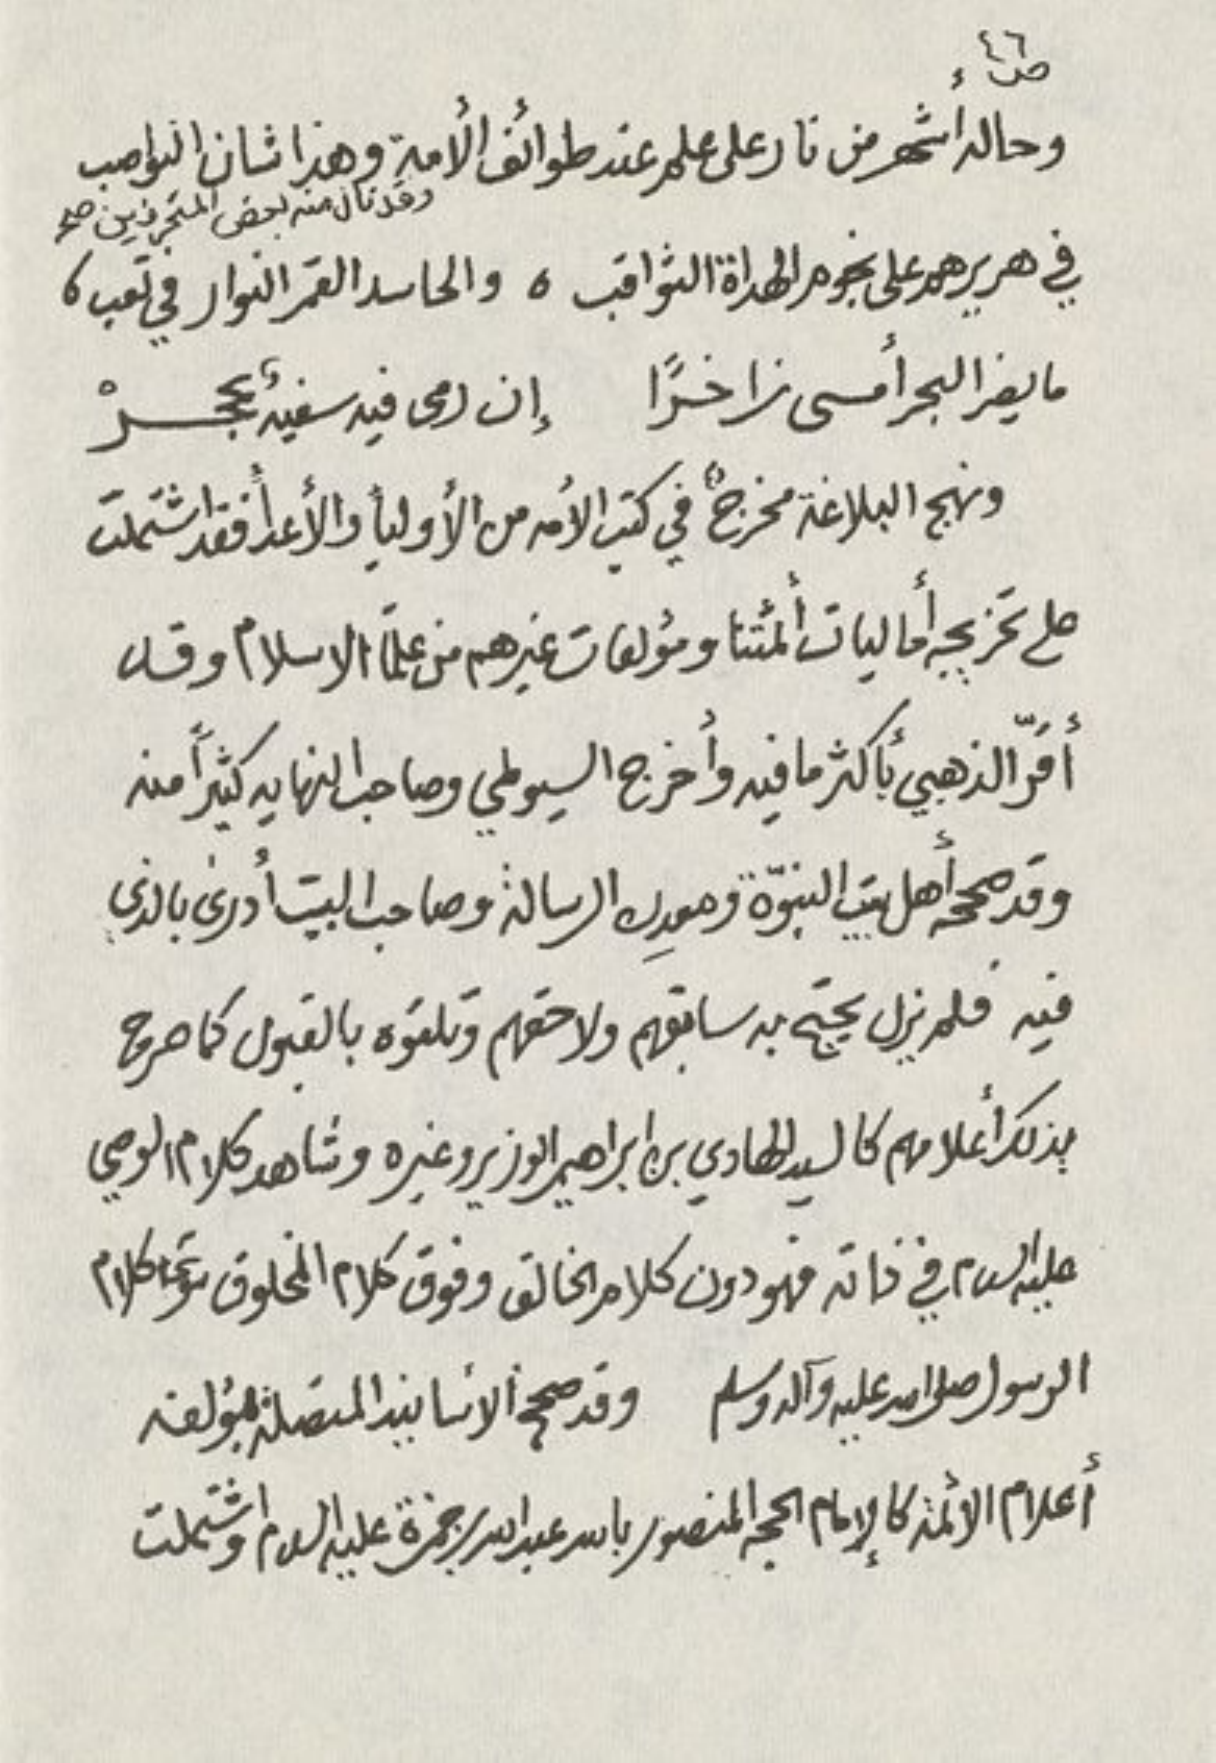 ص ٤٦
وحاله أشهر من نار على علم عند طوائف الأمة وهذا شان النواصب
وقد نال منه بعض المتجرئين صح
في هريرهم على نجوم الهداة الثواقب ه والحاسد القمر النوار في تعب ك
ما يضر البحر أمسى زاخرًا إن رمى فيه سفيهٌ بحجرْ
ونهج البلاغة مخرجٌ في كتب الأمه من الأولياء والأعداء فقد اشتملت
على تخريجه أماليات أئمتنا ومؤلفات غيرهم من علماء الاسلام وقد
أقَرّ الذهبي بأكثر ما فيه وأخرج السيوطي وصاحب النهايه كثيرًا منه
وقد صححه أهل بيت النبوّة ومعدِن الرسالة وصاحب البيت أدرى بالذي
فيه فلم يزل يحتج به سابقهم ولاحقهم وتلقوه بالقبول كما صرح
بذلك أعلامهم كالسيد الهادي بن ابراهيم الوزير وغيره وشاهد كلام الوصي
عليه السلام في ذاته فهو دون كلام الخالق وفوق كلام المخلوق كلام
الرسول صلى الله عليه وآله وسلم وقد صحح الأسانيد المتصلة بمؤلفه
أعلام الائمة كالإمام الحجه المنصور بالله عبد الله بن حمزة عليه السلام واشتملت